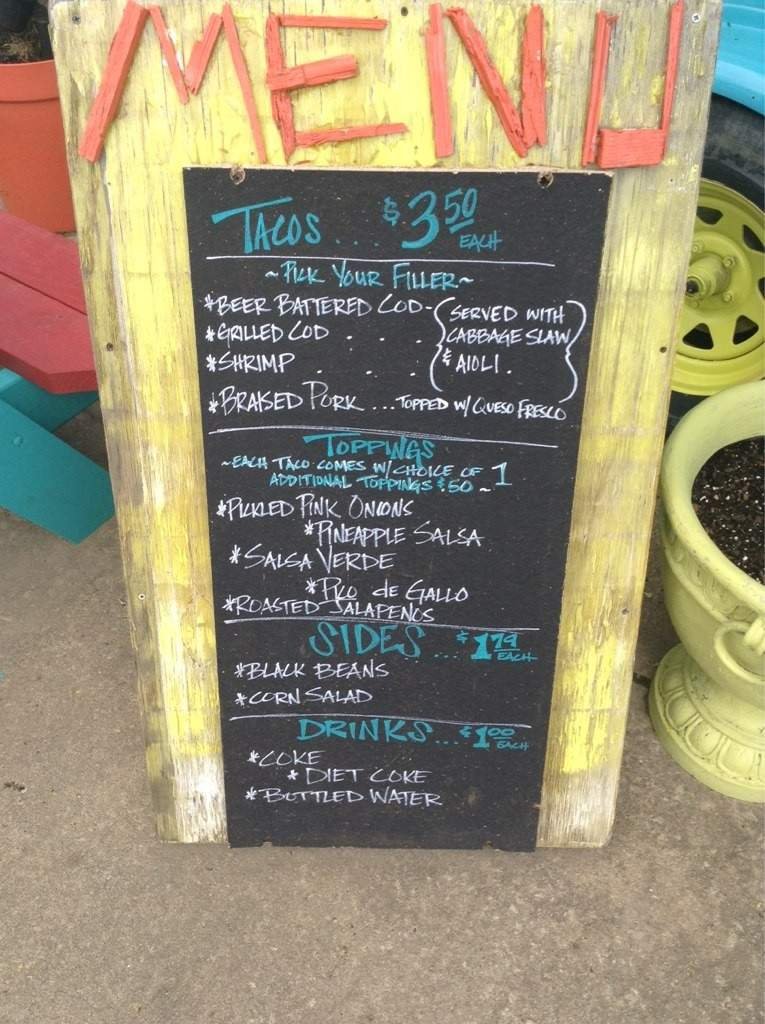 MENU
TACOS... $3.50 EACH
~PICK YOUR FILLER~
*BEER BATTERED COD-
*GRILLED COD . . .
*SHRIMP . . .
{SERVED WITH
CABBAGE SLAW
& AIOLI.}
*BRAISED PORK ...TOPPED W/ QUESO FRESCO
TOPPINGS
~EACH TACO COMES W/ CHOICE OF 1
ADDITIONAL TOPPINGS $.50~
*PICKLED PINK ONIONS
*PINEAPPLE SALSA
*SALSA VERDE
*PICO de GALLO
*ROASTED JALAPENOS
SIDES.... $1.79 EACH
*BLACK BEANS
*CORN SALAD
DRINKS... $1.00 EACH
*COKE
*DIET COKE
*BOTTLED WATER